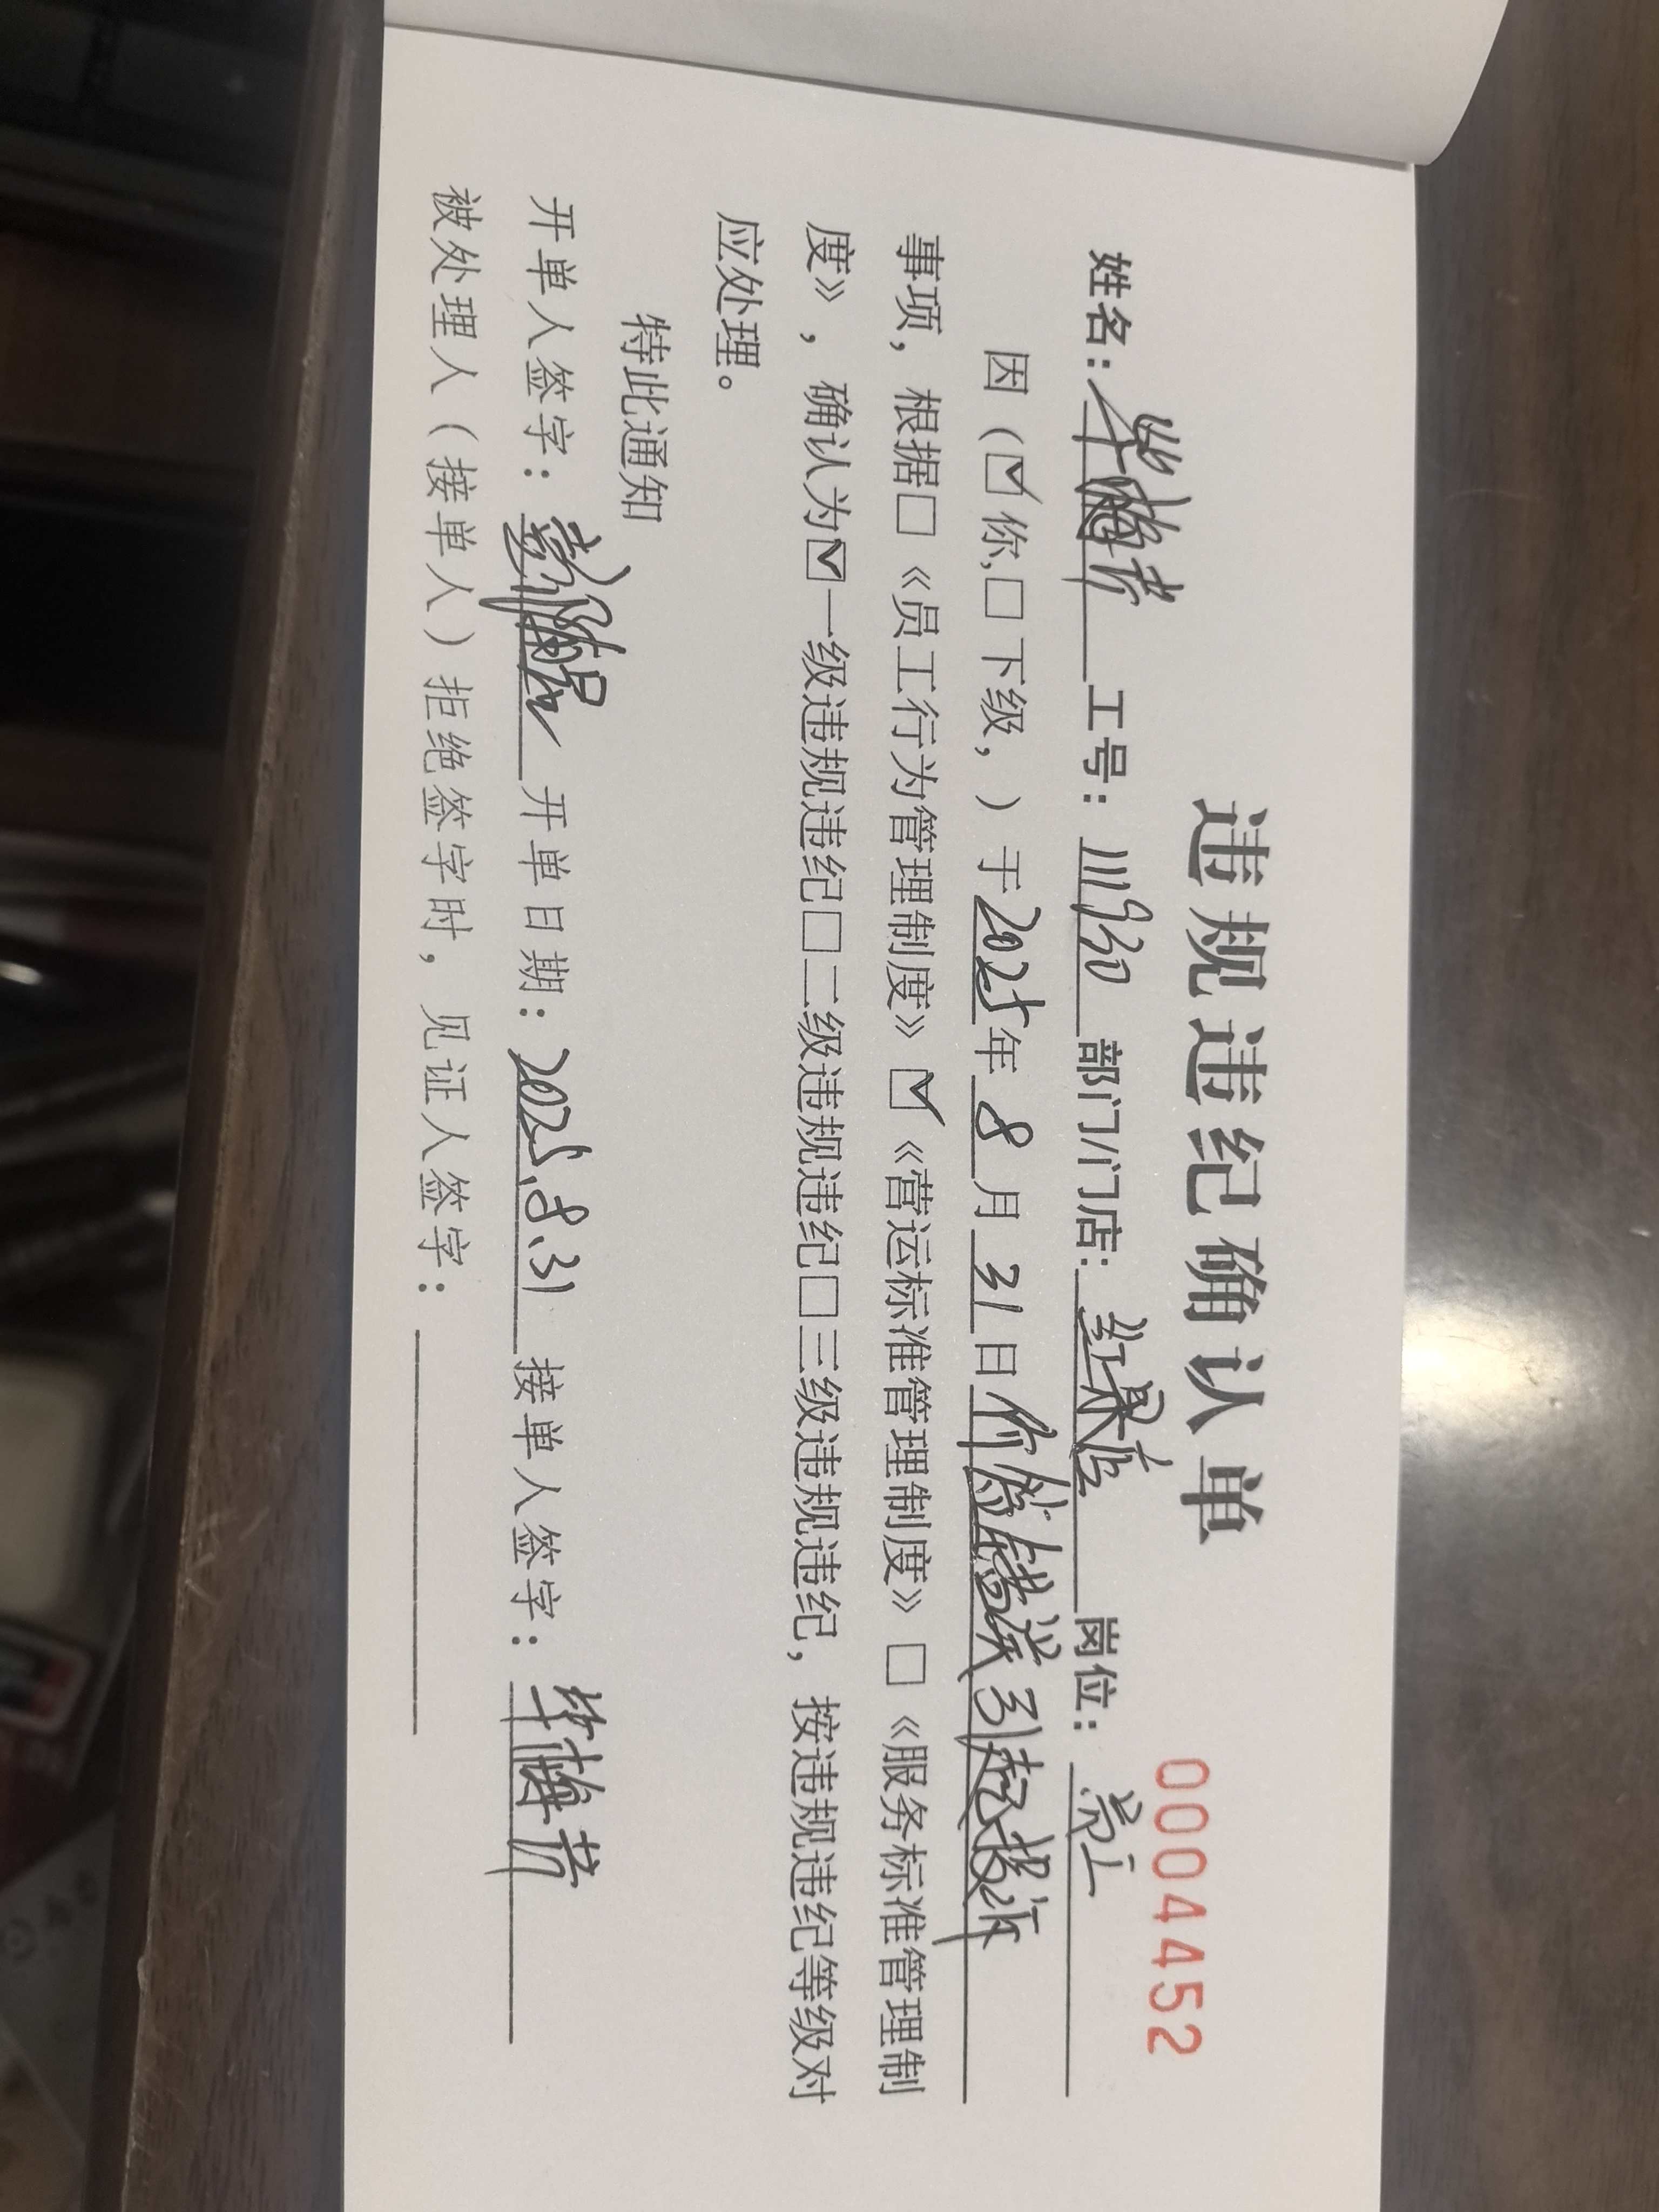 违规违纪确认单
0004452
姓名：华梅芳 工号：111930 部门/门店：红梁店 岗位：员工
因（☑你,□下级，）于2025年8月31日价签错误引起投诉
事项，根据□《员工行为管理制度》☑《营运标准管理制度》□《服务标准管理制
度》，确认为☑一级违规违纪□二级违规违纪□三级违规违纪，按违规违纪等级对
应处理。
特此通知
开单人签字： 开单日期：2025.8.31 接单人签字：华梅芳
被处理人（接单人）拒绝签字时，见证人签字：